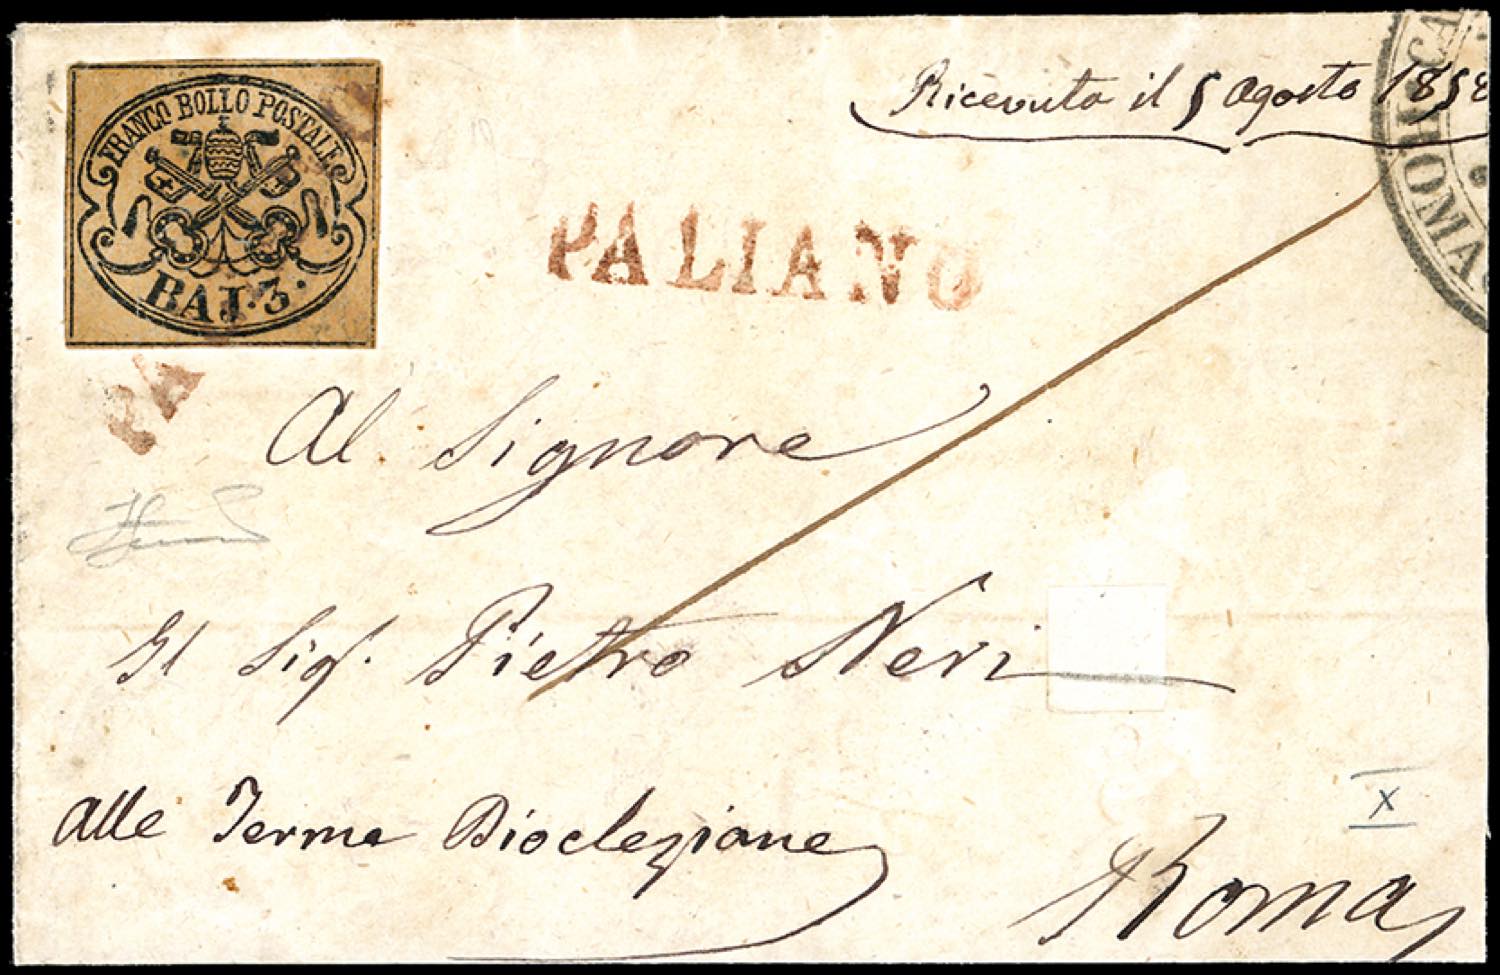 FRANCO BOLLO POSTALE
BAJ. 3.
Ricevuta il 5 Agosto 1858
PALIANO
PA
Al Signore
Il Sigr. Pietro Neri
alle Terme Diocleziane
Roma
ROMA
X